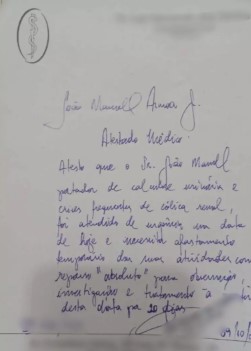 João Manoel
Atestado Médico
Atesto que o Dr. João Manoel
portador de calculose urinária e
crises frequentes de cólica renal,
foi atendido de urgência na data
de hoje e necessita afastamento
temporário das suas atividades com
repouso "absoluto" para observação,
investigação e tratamento à
desta data por 20 dias
09/10/